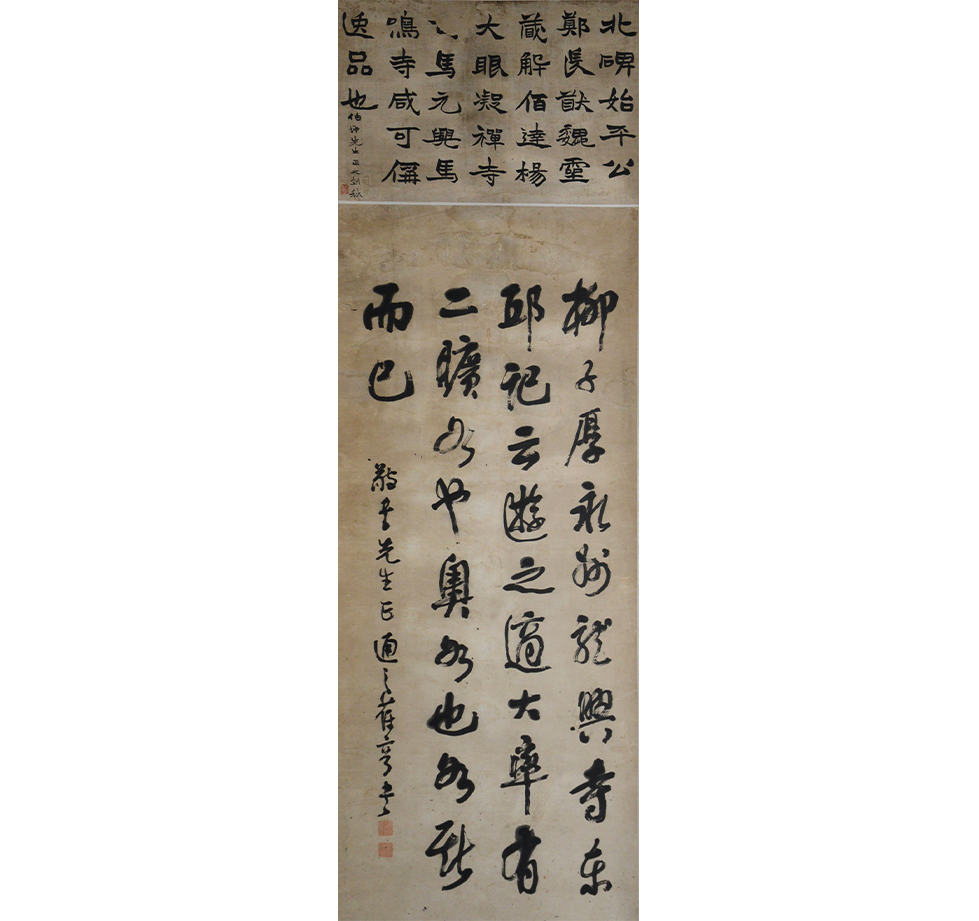 北碑始平公
鄭長猷魏靈
藏解佰達楊
大眼凝禪寺
馬元興馬
鳴寺咸可偁
逸品也
伯先生正之
柳子厚永州龍興寺東
邱記云遊之適大率有
二曠如也奧如也如斯
而已
敬先生正